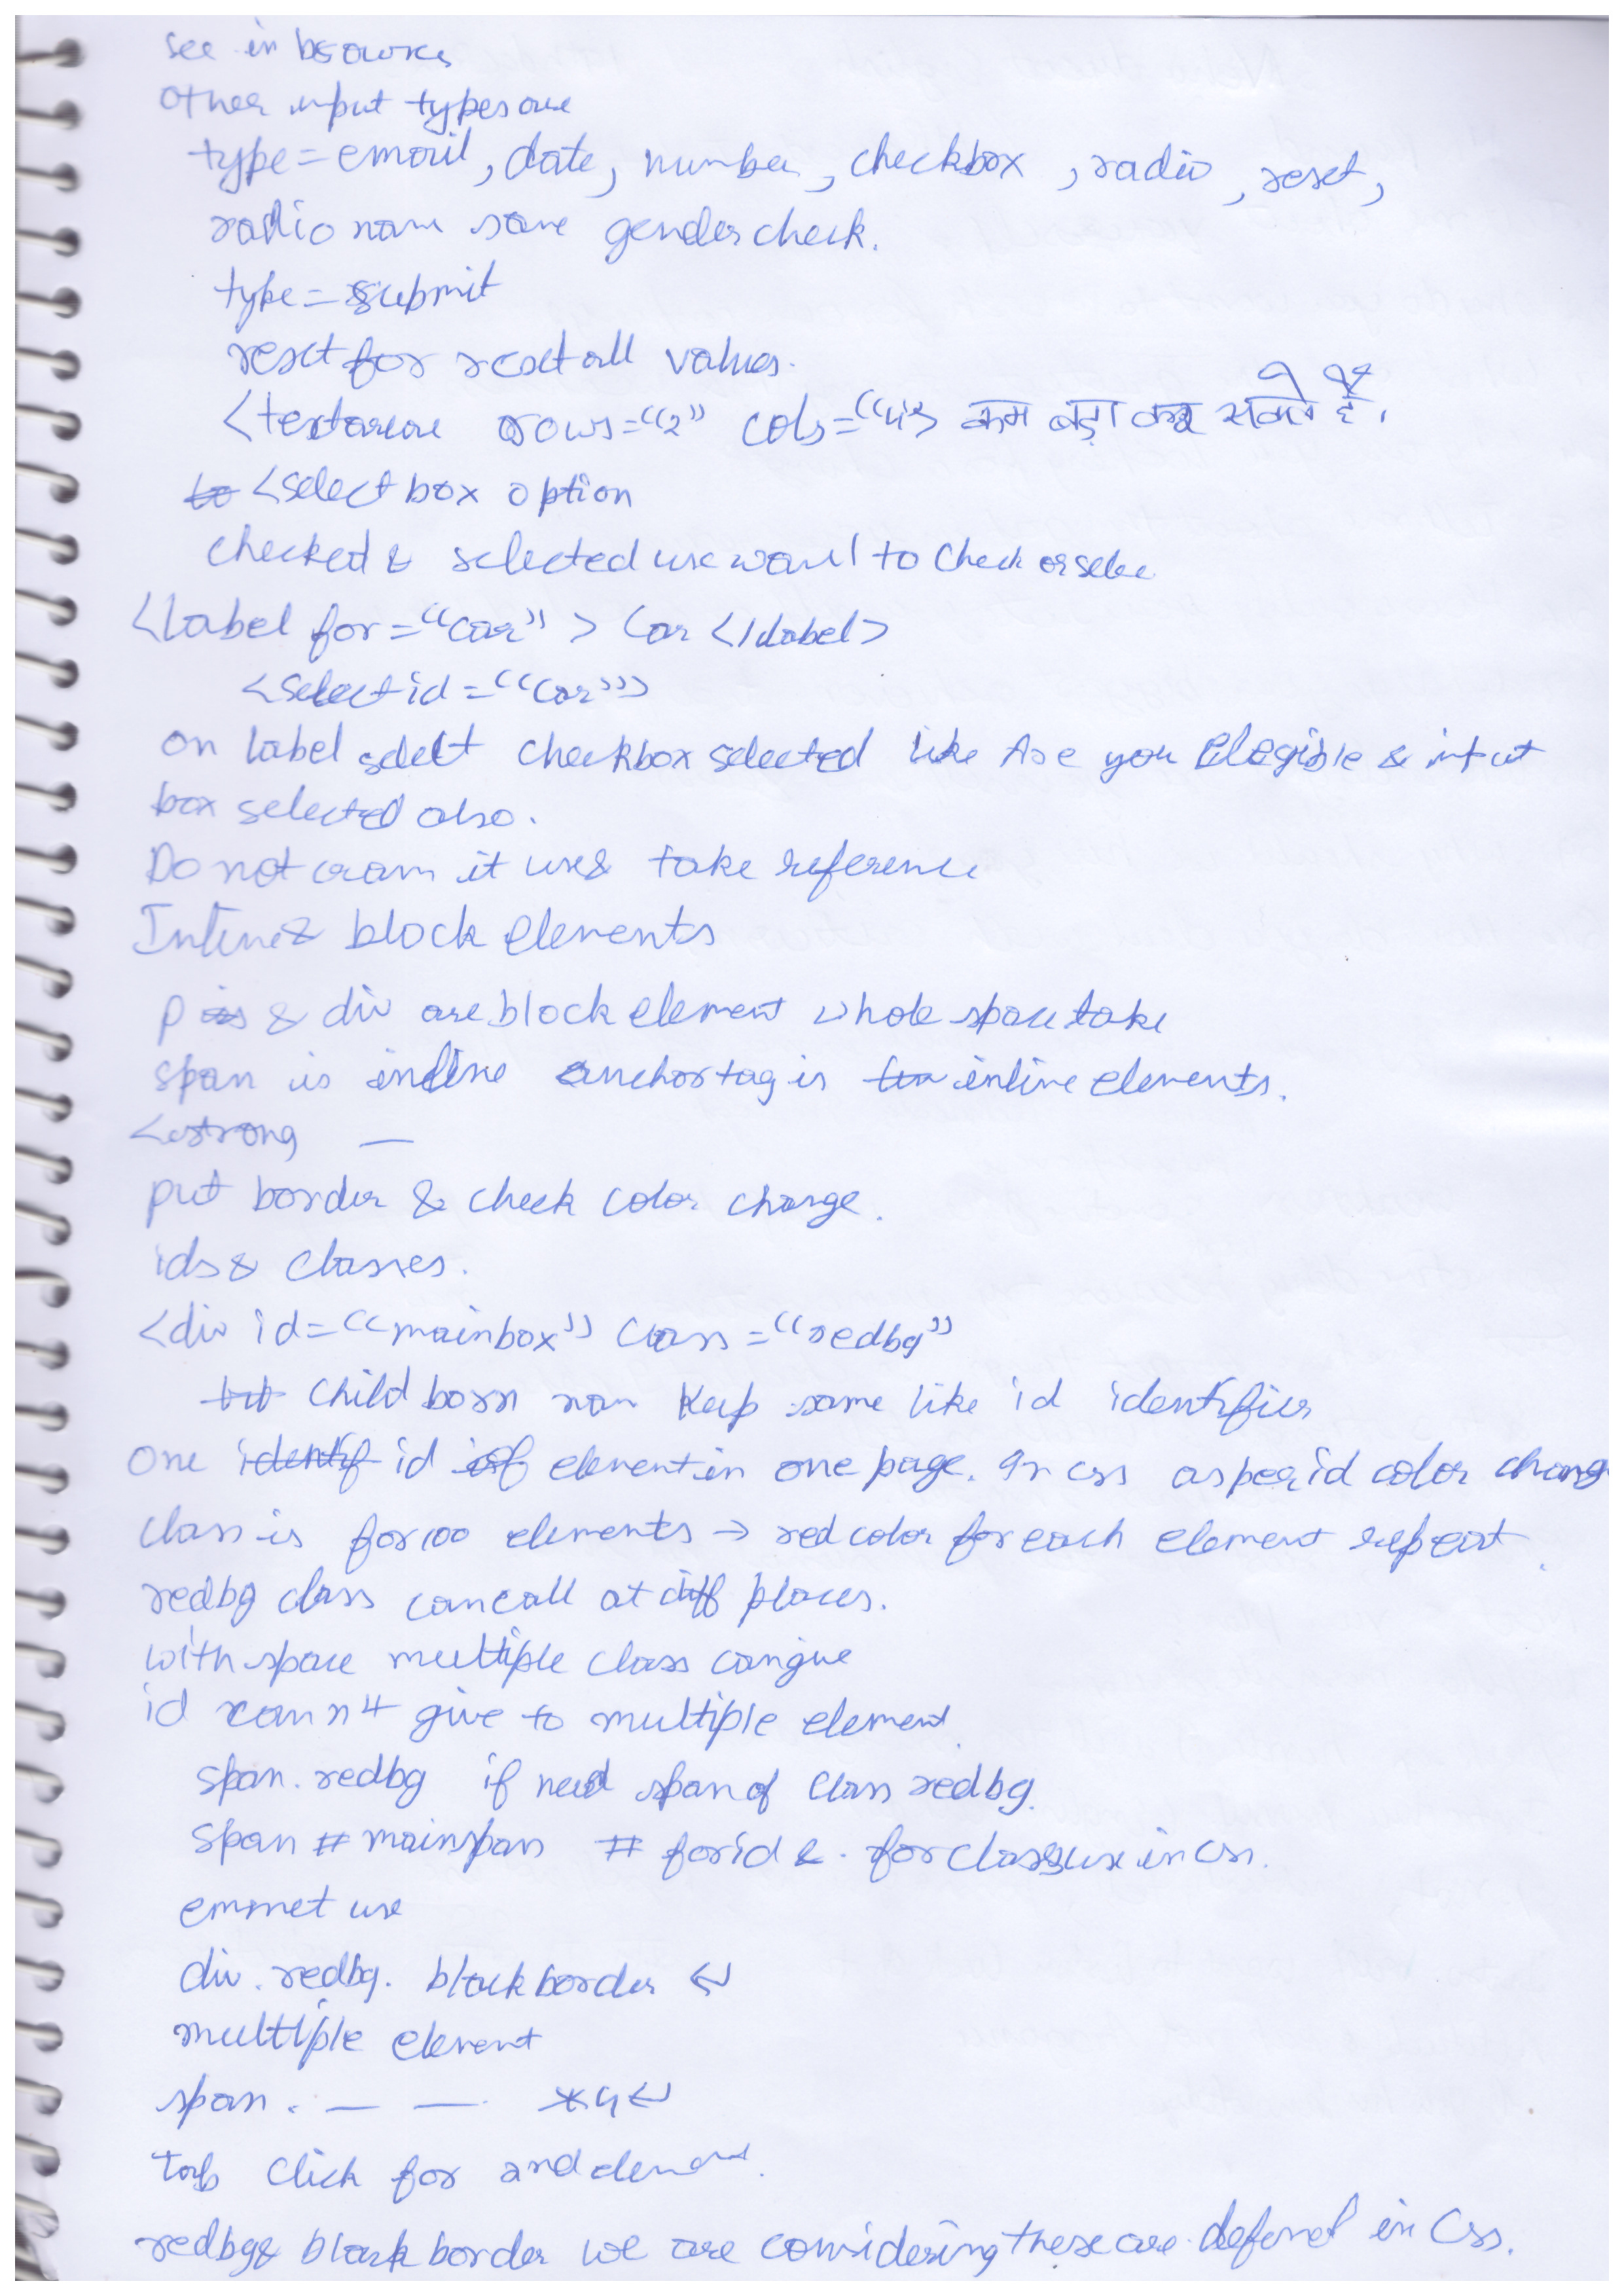 see in browser
Other input types are
type=email, date, number, checkbox, radio, reset,
radio name same gender check.
type=submit
reset for reset all values.
<textarea rows="2" cols="4"> कम बड़ा कर सकते हैं।
<select box option
checked & selected use want to check or
<label for="car"> Car </label>
<select id="car">
on label select checkbox selected like Are you Elegible & input
box selected also.
Do not cram it use & take reference
Inline & block elements
p & div are block element whole space take
span is inline anchor tag is inline elements.
<strong —
put border & check color change.
ids & classes.
<div id="mainbox" class="redbg"
child born name keep same like id identifier
One id of element in one page. In css as per id color chang
class is for 100 elements → red color for each element repeat.
redbg class can call at diff places.
with space multiple class can give
id can n't give to multiple element.
span.redbg if need span of class redbg.
span #mainspan # for id & . for class use in css.
emmet use
div.redbg.blackborder ↵
multiple element
span. — — *4↵
tab click for 2nd element.
redbg & black border we are considering these are defined in Css.